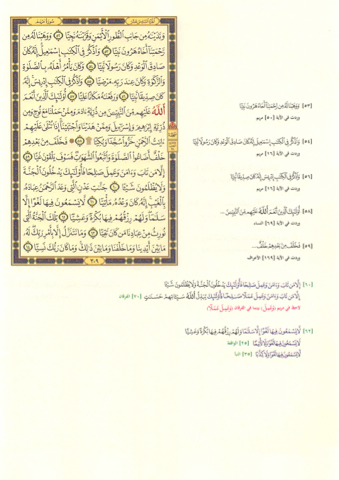 الجزء السادس عشر
سورة مريم
وَنَٰدَيْنَٰهُ مِن جَانِبِ ٱلطُّورِ ٱلْأَيْمَنِ وَقَرَّبْنَٰهُ نَجِيًّا ۝ وَوَهَبْنَا لَهُۥ مِن
رَّحْمَتِنَآ أَخَاهُ هَٰرُونَ نَبِيًّا ۝ وَٱذْكُرْ فِى ٱلْكِتَٰبِ إِسْمَٰعِيلَ إِنَّهُۥ كَانَ
صَادِقَ ٱلْوَعْدِ وَكَانَ رَسُولًا نَّبِيًّا ۝ وَكَانَ يَأْمُرُ أَهْلَهُۥ بِٱلصَّلَوٰةِ
وَٱلزَّكَوٰةِ وَكَانَ عِندَ رَبِّهِۦ مَرْضِيًّا ۝ وَٱذْكُرْ فِى ٱلْكِتَٰبِ إِدْرِيسَ إِنَّهُۥ
كَانَ صِدِّيقًا نَّبِيًّا ۝ وَرَفَعْنَٰهُ مَكَانًا عَلِيًّا ۝ أُو۟لَٰٓئِكَ ٱلَّذِينَ أَنْعَمَ
ٱللَّهُ عَلَيْهِم مِّنَ ٱلنَّبِيِّـۧنَ مِن ذُرِّيَّةِ ءَادَمَ وَمِمَّنْ حَمَلْنَا مَعَ نُوحٍ وَمِن
ذُرِّيَّةِ إِبْرَٰهِيمَ وَإِسْرَٰٓءِيلَ وَمِمَّنْ هَدَيْنَا وَٱجْتَبَيْنَآ إِذَا تُتْلَىٰ عَلَيْهِمْ
ءَايَٰتُ ٱلرَّحْمَٰنِ خَرُّوا۟ سُجَّدًا وَبُكِيًّا ۩ ۝ فَخَلَفَ مِنۢ بَعْدِهِمْ
خَلْفٌ أَضَاعُوا۟ ٱلصَّلَوٰةَ وَٱتَّبَعُوا۟ ٱلشَّهَوَٰتِ فَسَوْفَ يَلْقَوْنَ غَيًّا ۝
إِلَّا مَن تَابَ وَءَامَنَ وَعَمِلَ صَٰلِحًا فَأُو۟لَٰٓئِكَ يَدْخُلُونَ ٱلْجَنَّةَ
وَلَا يُظْلَمُونَ شَيْـًٔا ۝ جَنَّٰتِ عَدْنٍ ٱلَّتِى وَعَدَ ٱلرَّحْمَٰنُ عِبَادَهُۥ
بِٱلْغَيْبِ إِنَّهُۥ كَانَ وَعْدُهُۥ مَأْتِيًّا ۝ لَّا يَسْمَعُونَ فِيهَا لَغْوًا إِلَّا
سَلَٰمًا وَلَهُمْ رِزْقُهُمْ فِيهَا بُكْرَةً وَعَشِيًّا ۝ تِلْكَ ٱلْجَنَّةُ ٱلَّتِى
نُورِثُ مِنْ عِبَادِنَا مَن كَانَ تَقِيًّا ۝ وَمَا نَتَنَزَّلُ إِلَّا بِأَمْرِ رَبِّكَ لَهُۥ
مَا بَيْنَ أَيْدِينَا وَمَا خَلْفَنَا وَمَا بَيْنَ ذَٰلِكَ وَمَا كَانَ رَبُّكَ نَسِيًّا ۝
٣٠٩
[٥٣] وَوَهَبْنَا لَهُۥ مِن رَّحْمَتِنَآ أَخَاهُ هَٰرُونَ نَبِيًّا
[٥٤] وَٱذْكُرْ فِى ٱلْكِتَٰبِ إِسْمَٰعِيلَ إِنَّهُۥ كَانَ صَادِقَ ٱلْوَعْدِ وَكَانَ رَسُولًا نَّبِيًّا
[٥٦] وَٱذْكُرْ فِى ٱلْكِتَٰبِ إِدْرِيسَ إِنَّهُۥ كَانَ صِدِّيقًا نَّبِيًّا
[٥٨] أُو۟لَٰٓئِكَ ٱلَّذِينَ أَنْعَمَ ٱللَّهُ عَلَيْهِم مِّنَ ٱلنَّبِيِّـۧنَ...
[٥٩] فَخَلَفَ مِنۢ بَعْدِهِمْ خَلْفٌ...
[٦٠] إِلَّا مَن تَابَ وَءَامَنَ وَعَمِلَ صَٰلِحًا فَأُو۟لَٰٓئِكَ يَدْخُلُونَ ٱلْجَنَّةَ وَلَا يُظْلَمُونَ شَيْـًٔا
إِلَّا مَن تَابَ وَءَامَنَ وَعَمِلَ عَمَلًا صَٰلِحًا فَأُو۟لَٰٓئِكَ يُبَدِّلُ ٱللَّهُ سَيِّـَٔاتِهِمْ حَسَنَٰتٍ [٧٠] الفرقان
[٦٢] لَّا يَسْمَعُونَ فِيهَا لَغْوًا إِلَّا سَلَٰمًا وَلَهُمْ رِزْقُهُمْ فِيهَا بُكْرَةً وَعَشِيًّا
لَا يَسْمَعُونَ فِيهَا لَغْوًا وَلَا تَأْثِيمًا [٢٥] الواقعة
لَّا يَسْمَعُونَ فِيهَا لَغْوًا وَلَا كِذَّٰبًا [٣٥] النبأ